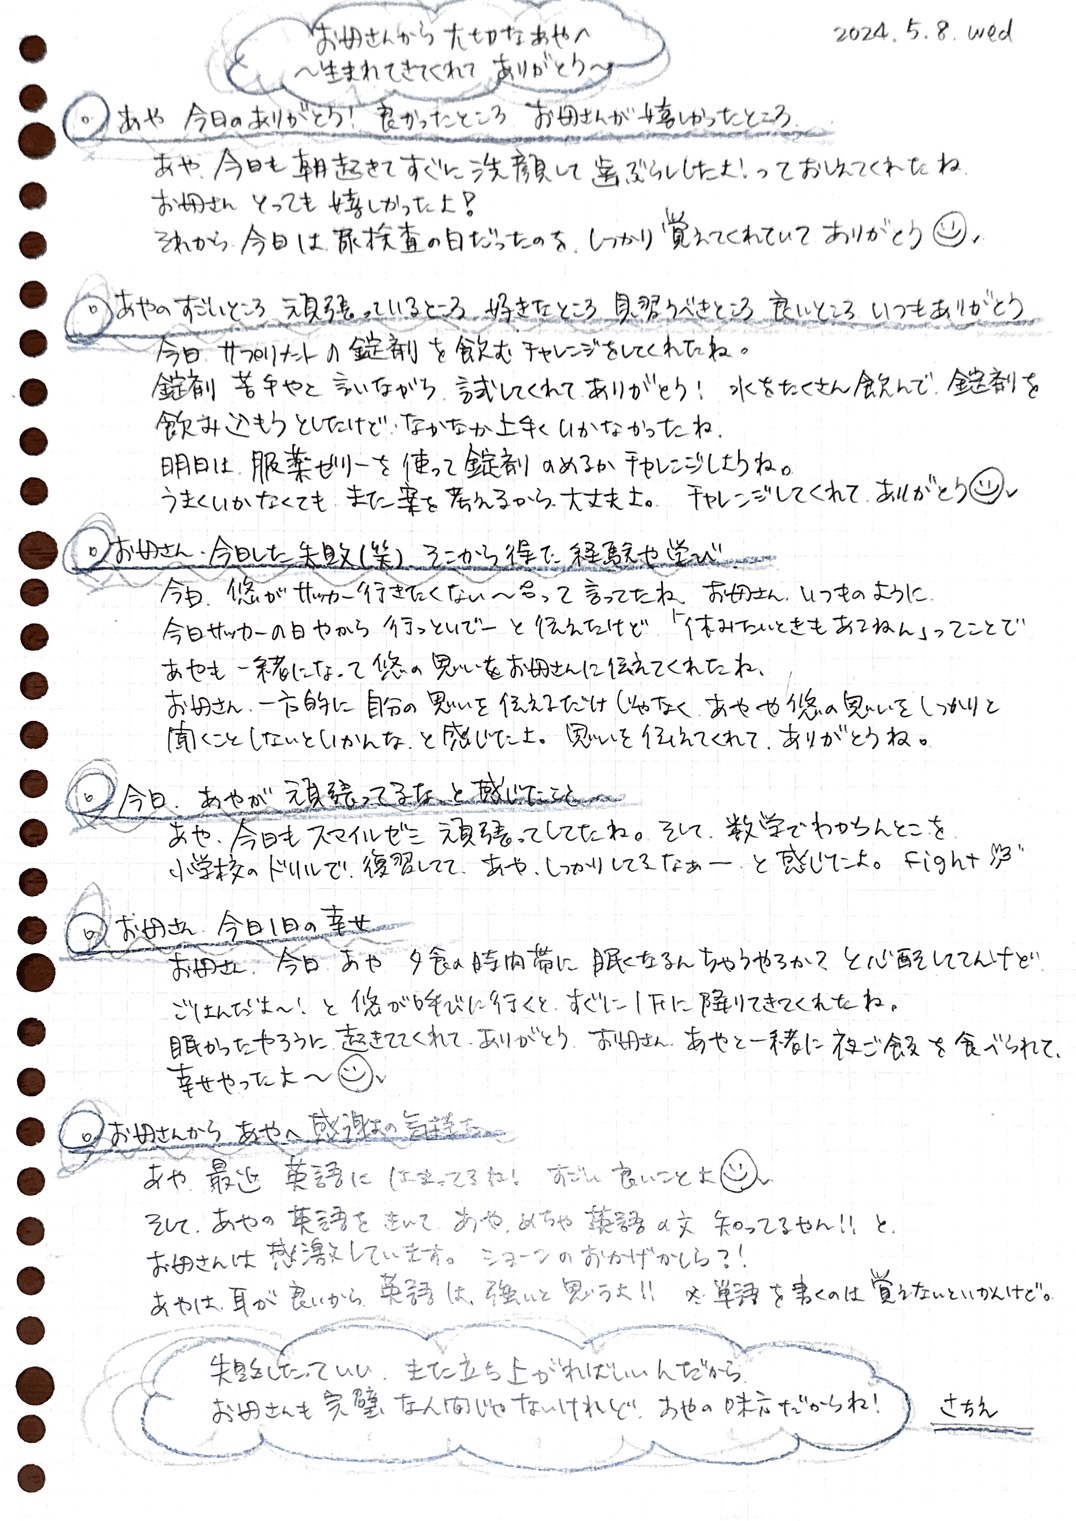 お母さんから 大切なあやへ
2024. 5. 8. wed
〜生まれてきてくれて ありがとう〜
あや 今日のありがとう! 良かったところ お母さんが嬉しかったところ
あや、今日も朝起きてすぐに洗顔して歯ぶらししたよ!っておしえてくれたね
お母さん とっても嬉しかったよ!
それから、今日は尿検査の日だったのを、しっかり覚えてくれていて ありがとう
あやのすごいところ 頑張っているところ 好きなところ 見習うべきところ 良いところ いつもありがとう
今日、サプリメントの錠剤を飲むチャレンジをしてくれたね。
錠剤 苦手やと言いながら、試してくれてありがとう! 水をたくさん飲んで、錠剤を
飲み込もうとしたけど、なかなか上手くいかなかったね、
明日は、服薬ゼリーを使って錠剤のめるかチャレンジしようね。
うまくいかなくても、また案を考えるから、大丈夫よ。 チャレンジしてくれて、ありがとう
お母さん、今日した失敗(笑)、そこから得た 経験や学び
今日、悠がサッカー行きたくない〜って言ってたね、お母さん、いつものように
今日サッカーの日やから 行っといでーと伝えたけど「休みたいときもあるねん」ってことで
あやも一緒になって悠の思いをお母さんに伝えてくれたね、
お母さん、一方的に自分の思いを伝えるだけじゃなく、あやや悠の思いをしっかりと
聞くことしないといかんな、と感じたよ。 思いを伝えてくれて、ありがとうね。
今日、あやが 頑張ってるな、と感じたこと
あや、今日もスマイルゼミ頑張ってしてたね。そして、数学でわからんとこを
小学校のドリルで、復習してて、あや、しっかりしてるなぁーと感じたよ。 Fight
お母さん、今日1日の幸せ
お母さん、今日、あや 夕食の時間帯に眠くなるんちゃうやろか?と心配してたけど
ごはんだよ〜! と悠が呼びに行くと、すぐに1Fに降りてきてくれたね。
眠かったやろうに、起きててくれて、ありがとう、お母さん、あやと一緒に夜ご飯を食べられて、
幸せやったよ〜
お母さんから あやへ 感謝の言葉
あや、最近 英語にはまってるね! すごい 良いことよ
そして、あやの英語をきいて、あや、めちゃ英語の文 知ってるやん!! と、
お母さんは感激しています。 ショーンのおかげかしら?!
あやは、耳が良いから、英語は、強いと思うよ!! ※単語を書くのは覚えないといかんけど。
失敗したっていい、また立ち上がればいいんだから
お母さんも完璧な人間じゃないけれど、あやの味方だからね!
さちえ